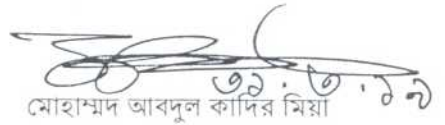 ৩১.৩.১৯
মোহাম্মদ আবদুল কাদির মিয়া